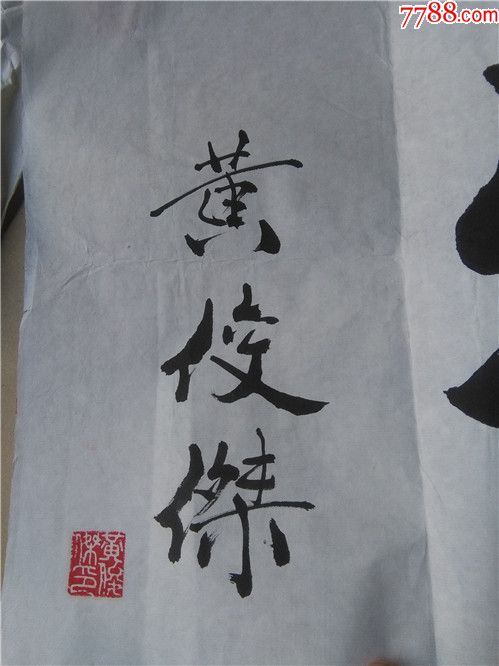 7788.com
黄俊傑
黄俊
傑印